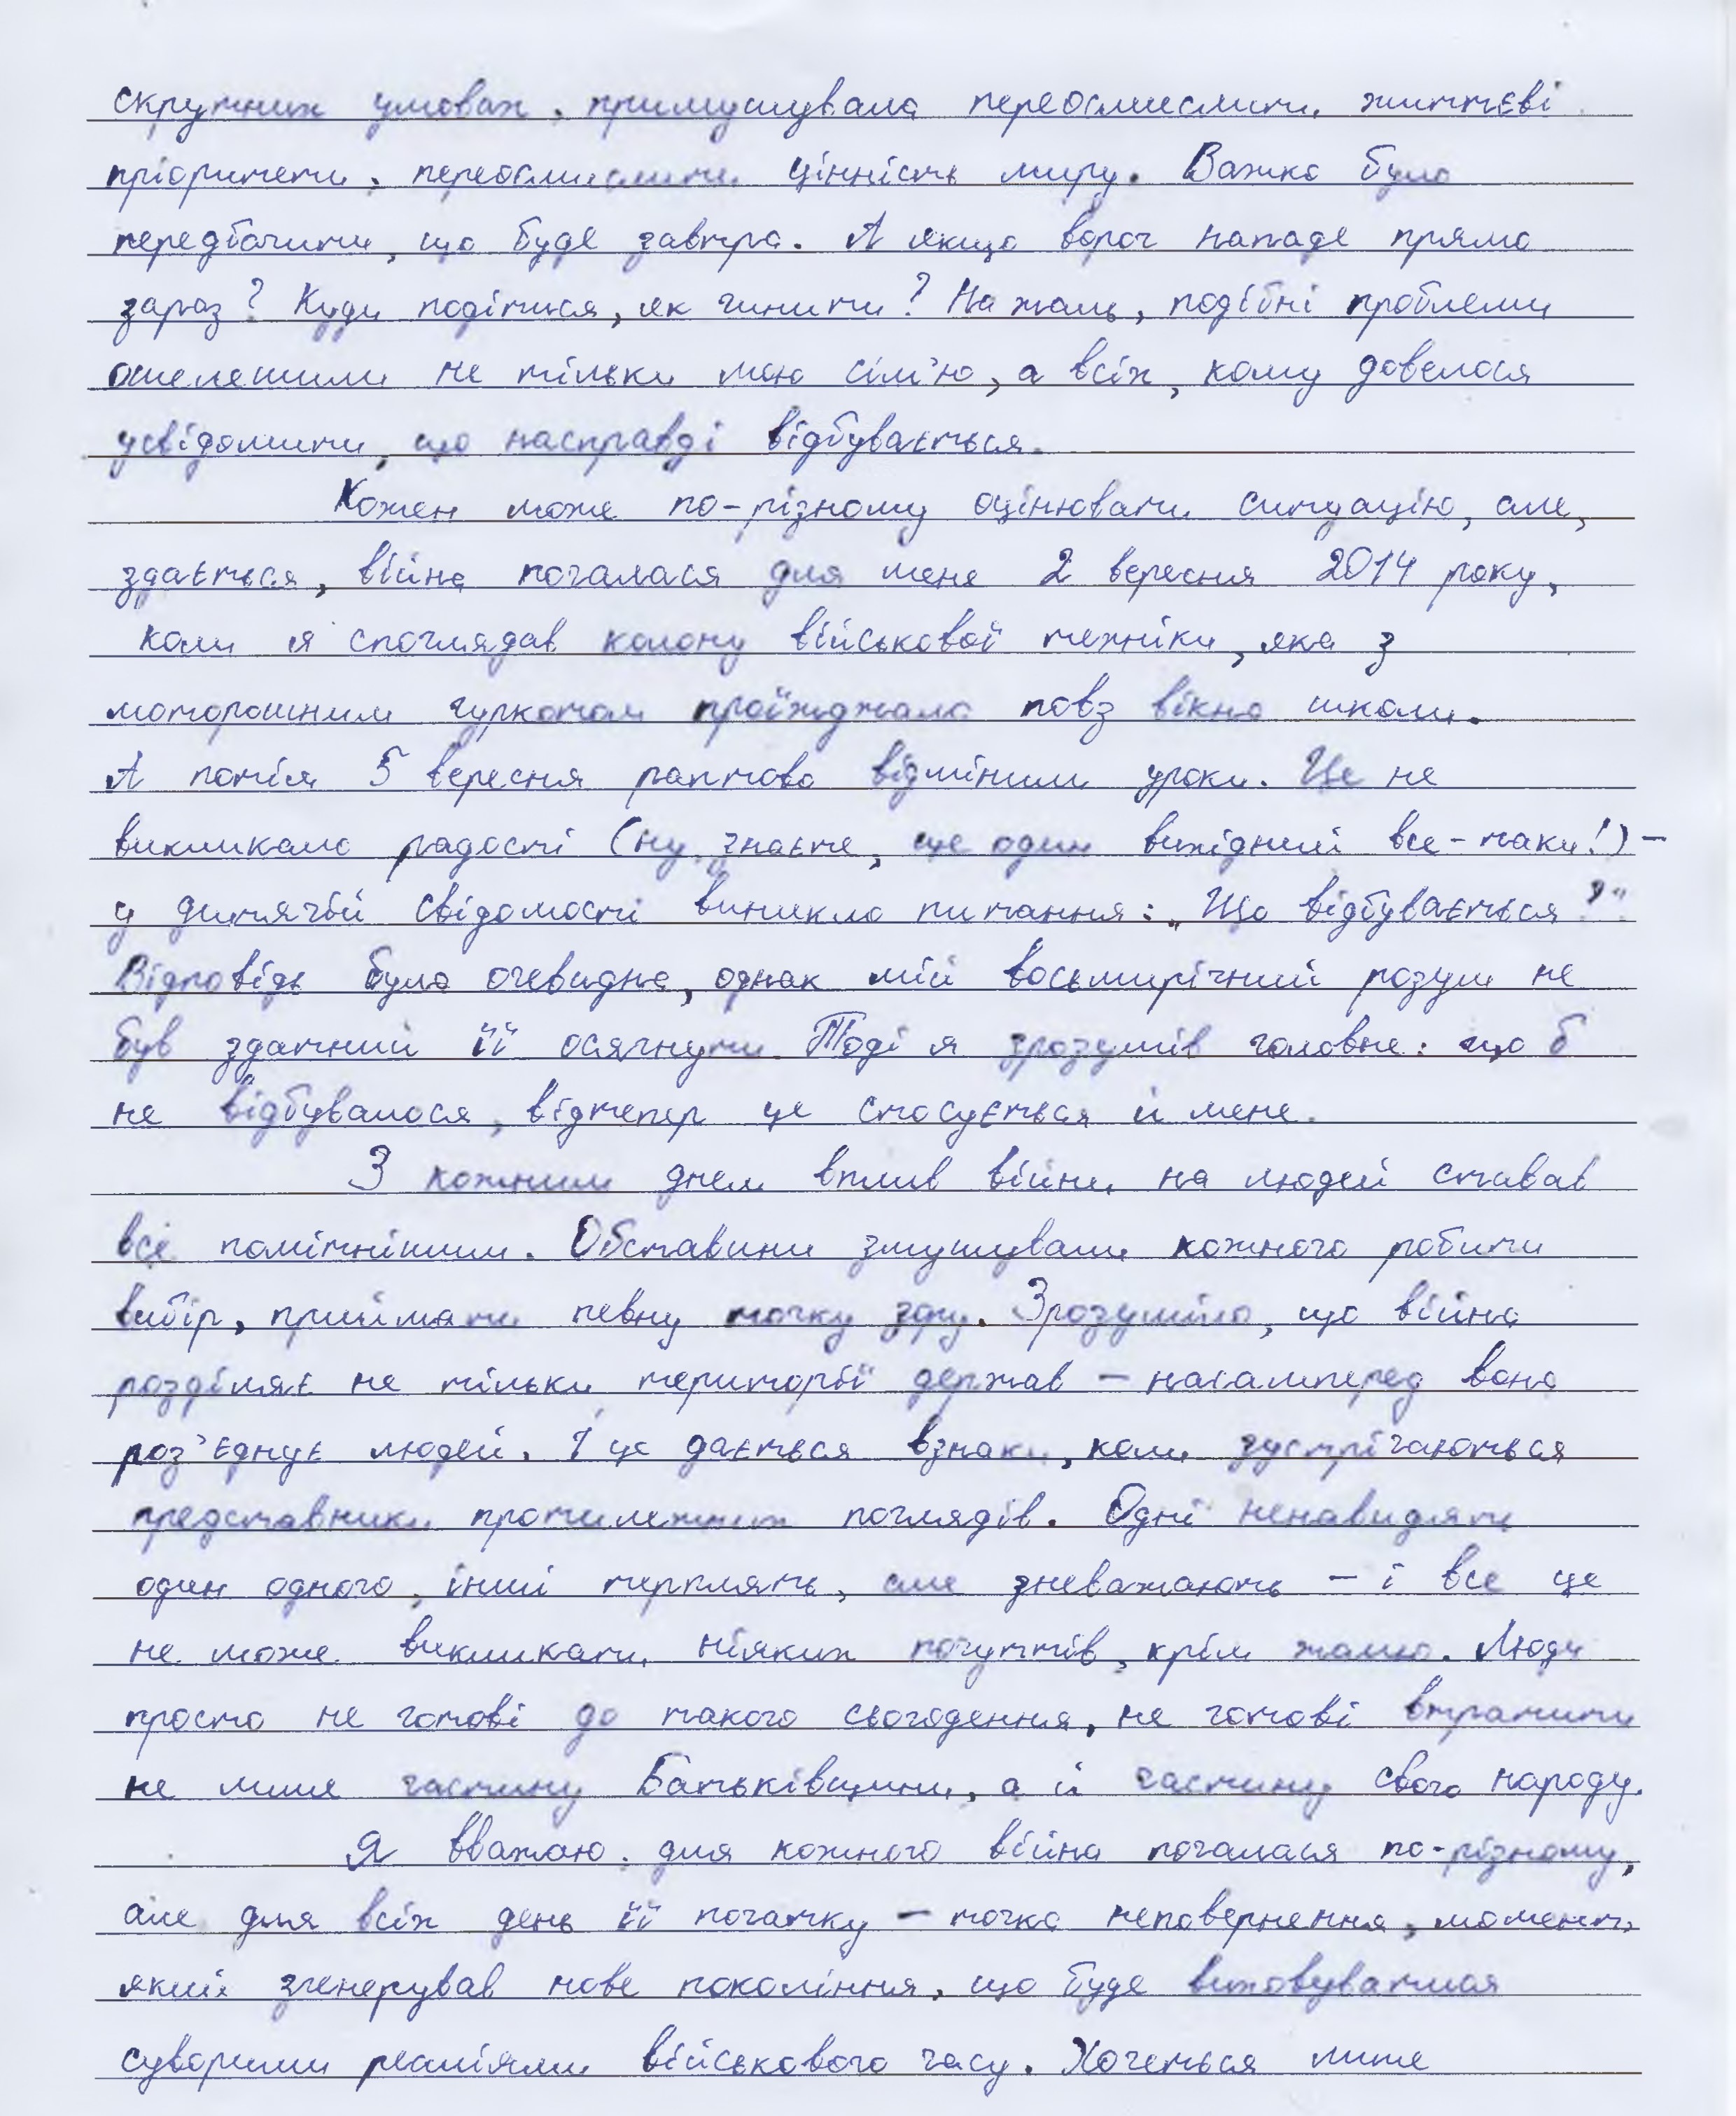 скрутних умовах, примушувала переосмислити життєві
пріоритети, переосмислити цінність миру. Важко було
передбачити, що буде завтра. А якщо ворог нападе прямо
зараз? Куди подітися, як чинити? На жаль, подібні проблеми
ошелешили не тільки мою сім'ю, а всіх, кому довелося
усвідомити, що насправді відбувається.
Кожен може по-різному оцінювати ситуацію, але,
здається, війна почалася для мене 2 вересня 2014 року,
коли я споглядав колону військової техніки, яка з
моторошним гуркотом проїжджала повз вікна школи.
А потім 5 вересня раптово відмінили уроки. Це не
викликало радості (ну, знаєте, ще один вихідний все-таки!) –
у дитячій свідомості виникло питання: „Що відбувається?"
Відповідь була очевидна, однак мій восьмирічний розум не
був здатний її осягнути. Тоді я зрозумів головне: що б
не відбувалося, відтепер це стосується й мене.
З кожним днем вплив війни на людей ставав
все помітнішим. Обставини змушували кожного робити
вибір, приймати певну точку зору. Зрозуміло, що війна
розділяє не тільки території держав – насамперед вона
роз'єднує людей. І це дається взнаки, коли зустрічаються
представники протилежних поглядів. Одні ненавидять
один одного, інші терплять, але зневажають – і все це
не може викликати ніяких почуттів, крім жалю. Люди
просто не готові до такого сьогодення, не готові втратити
не лише частину Батьківщини, а й частину свого народу.
Я вважаю, для кожного війна почалася по-різному,
але для всіх день її початку – точка неповернення, момент,
який згенерував нове покоління, що буде виховуватися
суворими реаліями військового часу. Хочеться лише